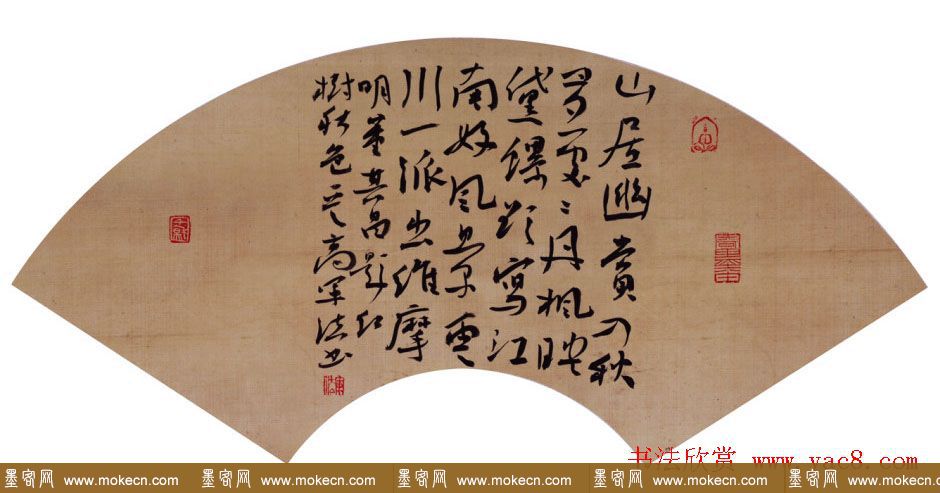 山居幽賞入秋
多處々丹楓映
黛螺欲寫江
南好風景雲
川一派出維摩
明董其昌題紅
樹秋色高軍法書
书法欣赏 www.yac8.com
墨客网 www.mokecn.com 墨客网 www.mokecn.com 墨客网 www.mokecn.com 墨客网 www.mokecn.com 墨客网 www.mokecn.com